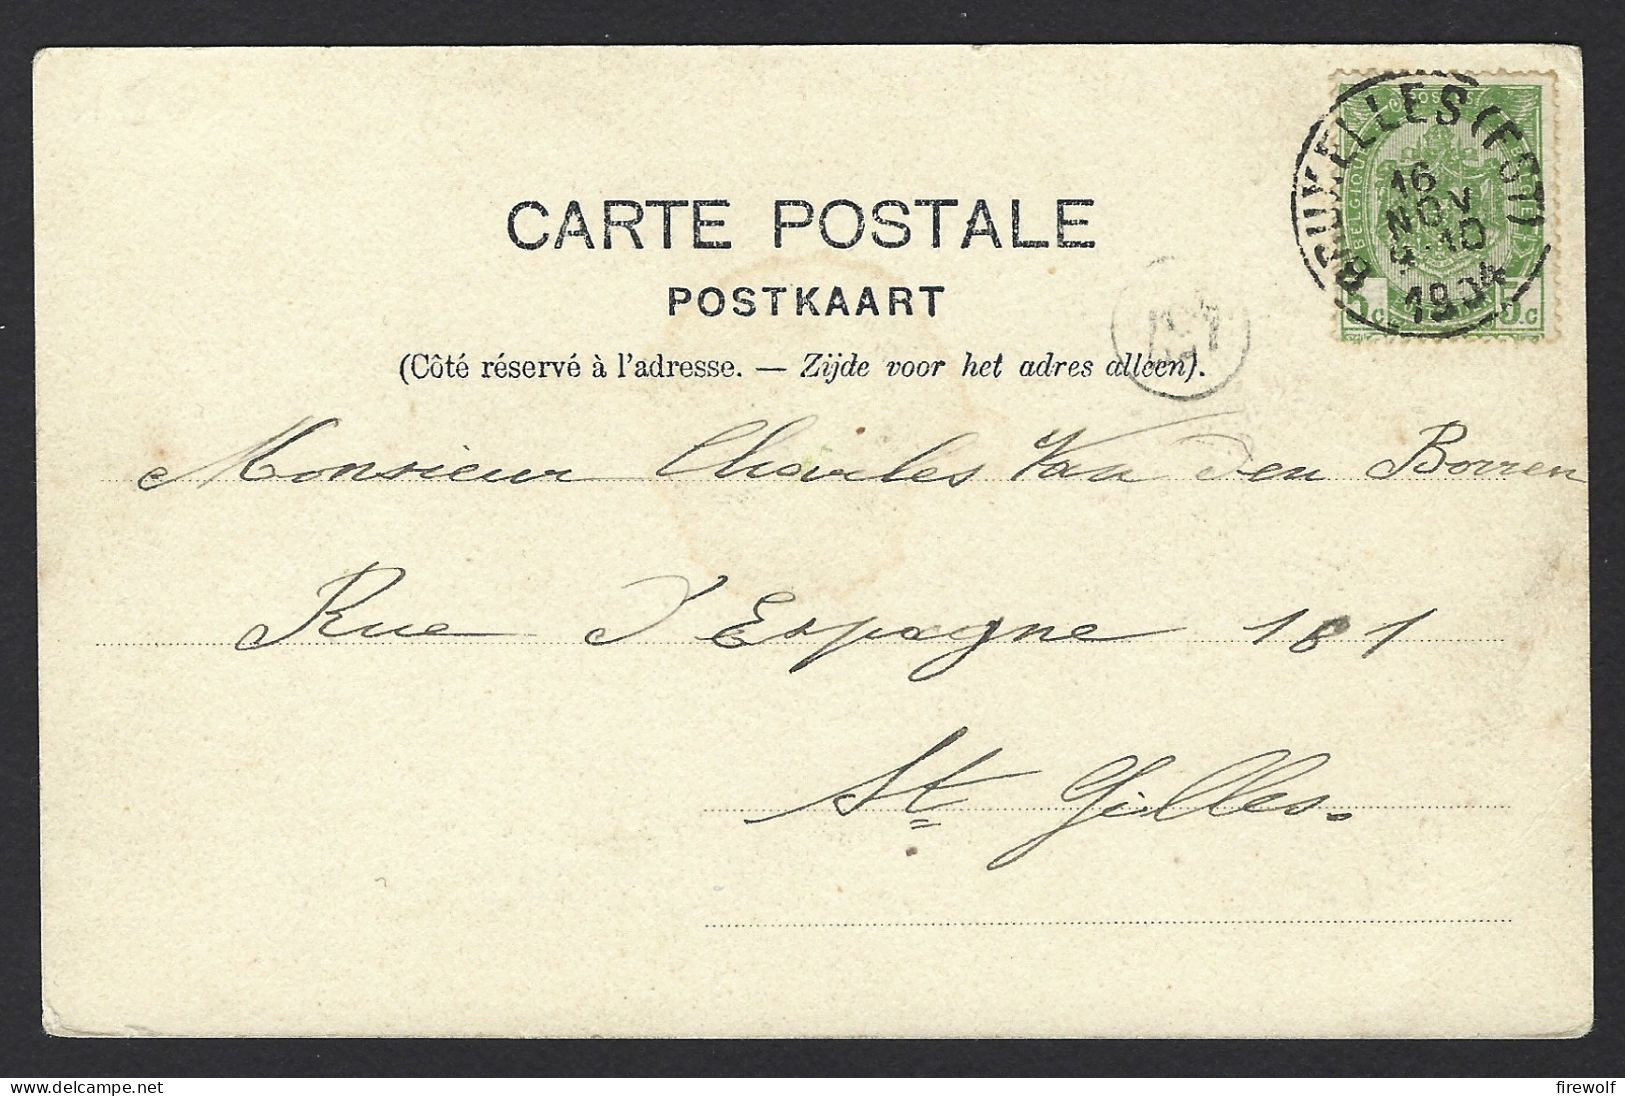 CARTE POSTALE
POSTKAART
(Côté réservé à l'adresse. — Zijde voor het adres alleen).
POSTES
BELGIQUE
5c
5.c
BRUXELLES (EST)
16
NOV
9-10
1904
Monsieur Charles Van Den Borren
Rue d'Espagne 181
St Gilles.
firewolf